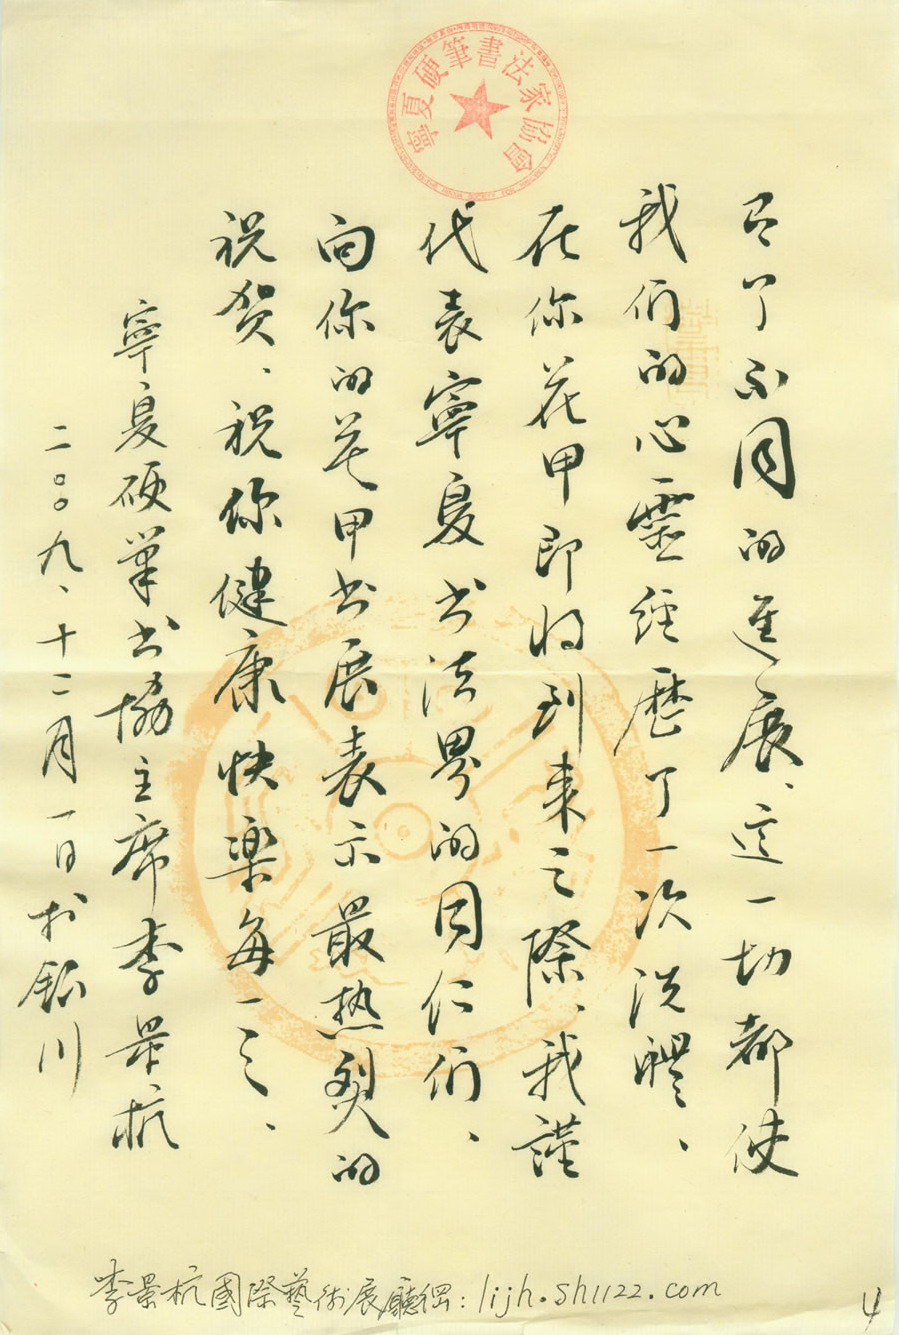 寧夏硬筆書法家協會
了不同的進展、这一切都使
我们的心靈经歷了一次洗禮、
在你花甲即将到来之際、我謹
代表寧夏书法界的同仁们、
向你的花甲书展表示最热烈的
祝贺、祝你健康快樂每一天、
寧夏硬筆书協主席李景杭
二〇〇九、十二月一日於銀川
李景杭國際藝術展廳網:lijh.sh1122.com
4